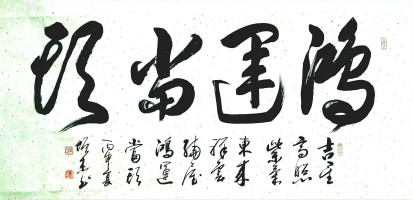 鸿運當頭
吉星
高照
紫氣
東來
祥雲
繞屋
鴻運
當頭
丙申夏